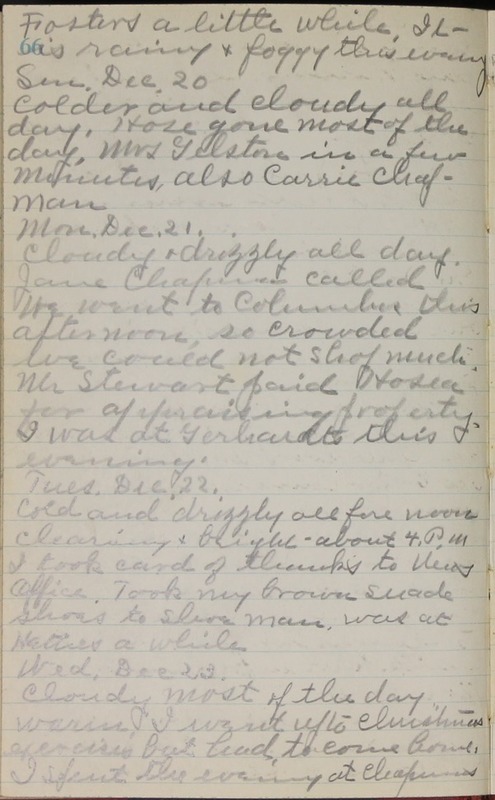 Fosters a little while, It
66 is rainy & foggy this evening
Sun. Dec. 20
Colder and cloudy all
day, Hose gone most of the
day, Mrs Gelston in a few
minutes, also Carrie Chap-
man
Mon. Dec. 21.
Cloudy & drizzly all day.
Jane Chapman called
We went to Columbus this
afternoon, so crowded
we could not shop much.
Mr Stewart paid Hosea
for appraising property
I was at Gerhardts this
evening.
Tues. Dec. 22.
Cold and drizzly all fore noon
Clearing & bright - about 4. P.M
I took card of thanks to News
Office. Took my brown suade
shoes to shoe man, was at
Hatties a while
Wed. Dec 23.
Cloudy most of the day
warm, I went up to Christmas
exercises but had to come home.
I spent the evening at Chapmans